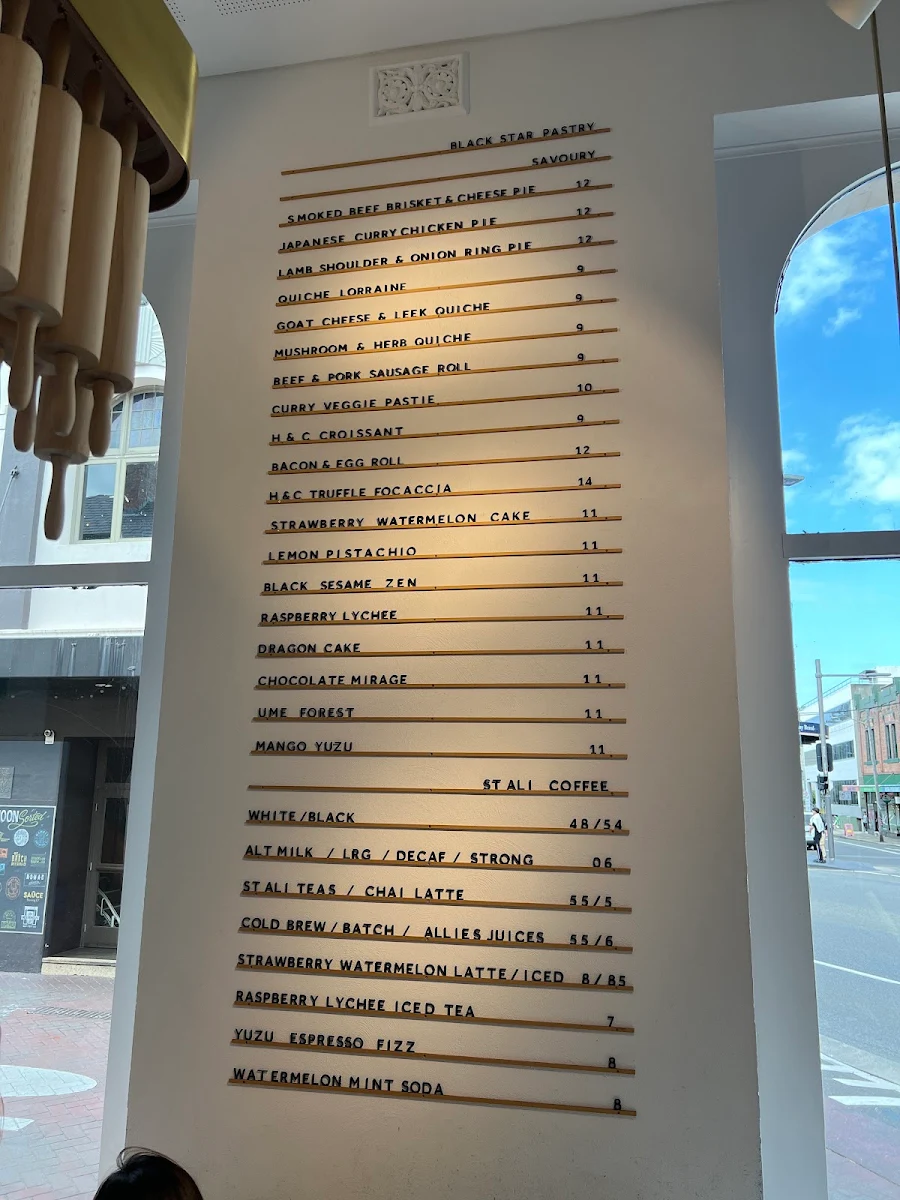 BLACK STAR PASTRY
SAVOURY
SMOKED BEEF BRISKET & CHEESE PIE 12
JAPANESE CURRY CHICKEN PIE 12
LAMB SHOULDER & ONION RING PIE 12
QUICHE LORRAINE 9
GOAT CHEESE & LEEK QUICHE 9
MUSHROOM & HERB QUICHE 9
BEEF & PORK SAUSAGE ROLL 9
CURRY VEGGIE PASTIE 10
H & C CROISSANT 9
BACON & EGG ROLL 12
H&C TRUFFLE FOCACCIA 14
STRAWBERRY WATERMELON CAKE 11
LEMON PISTACHIO 11
BLACK SESAME ZEN 11
RASPBERRY LYCHEE 11
DRAGON CAKE 11
CHOCOLATE MIRAGE 11
UME FOREST 11
MANGO YUZU 11
ST ALI COFFEE
WHITE/BLACK 48/54
ALT MILK / LRG / DECAF / STRONG 06
ST ALI TEAS / CHAI LATTE 55/5
COLD BREW / BATCH / ALLIES JUICES 55/6
STRAWBERRY WATERMELON LATTE/ICED 8/85
RASPBERRY LYCHEE ICED TEA 7
YUZU ESPRESSO FIZZ 8
WATERMELON MINT SODA 8